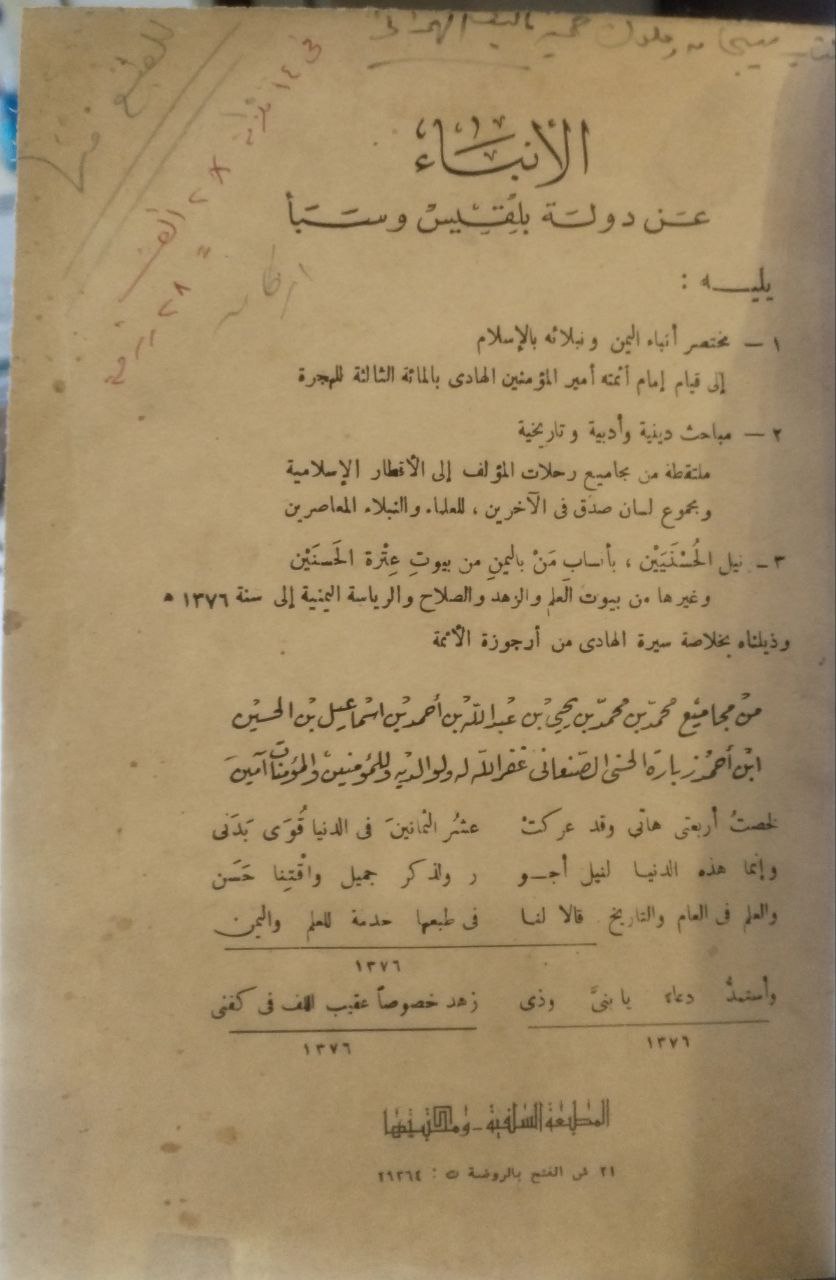 الأنبَاء
عَن دولَة بلقِيسْ وسَبَأ
يليه :
١ — مختصر أنباء اليمن ونبلائه بالإسلام
إلى قيام إمام أئمته أمير المؤمنين الهادى بالمائة الثالثة للهجرة
٢ — مباحث دينية وأدبية وتاريخية
ملتقطة من مجاميع رحلات المؤلف إلى الأقطار الإسلامية
ومجموع لسان صدق فى الآخرين ، للعلماء والنبلاء المعاصرين
٣ – نيل الحُسْنَيَيْن ، بأنسابِ مَنْ باليمنِ من بيوتِ عِتْرة الحَسنَيْن
وغيرها من بيوت العلم والزهد والصلاح والرياسة اليمنية إلى سنة ١٣٧٦ ه
وذيلناه بخلاصة سيرة الهادى من أرجوزة الأئمة
من مجاميع محمد بن محمد بن يحيى بن عبد الله بن أحمد بن اسماعيل بن الحسين
ابن أحمد زبارة الحسنى الصنعانى غفر الله له ولوالديه وللمؤمنين والمؤمنات آمين
لخصتُ أربعتى هاتى وقد عركتْ عشرُ الثمانينَ فى الدنيا قُوَى بَدَنى
وإنما هذه الدنيا لنيل أجو ر ولذكر جميل واقْتِنا حَسَن
والعلم فى العام والتاريخ قالا لنا فى طبعها خدمة للعلم واليمن
١٣٧٦
وأستمدُّ دعاء يا بنىَّ وذى زهد خصوصاً عقيب اللف فى كفنى
١٣٧٦ ١٣٧٦
المطبعة السلفية - ومكتبتها
٢١ ش الفتح بالروضة ت : ٢٦٣٦٤